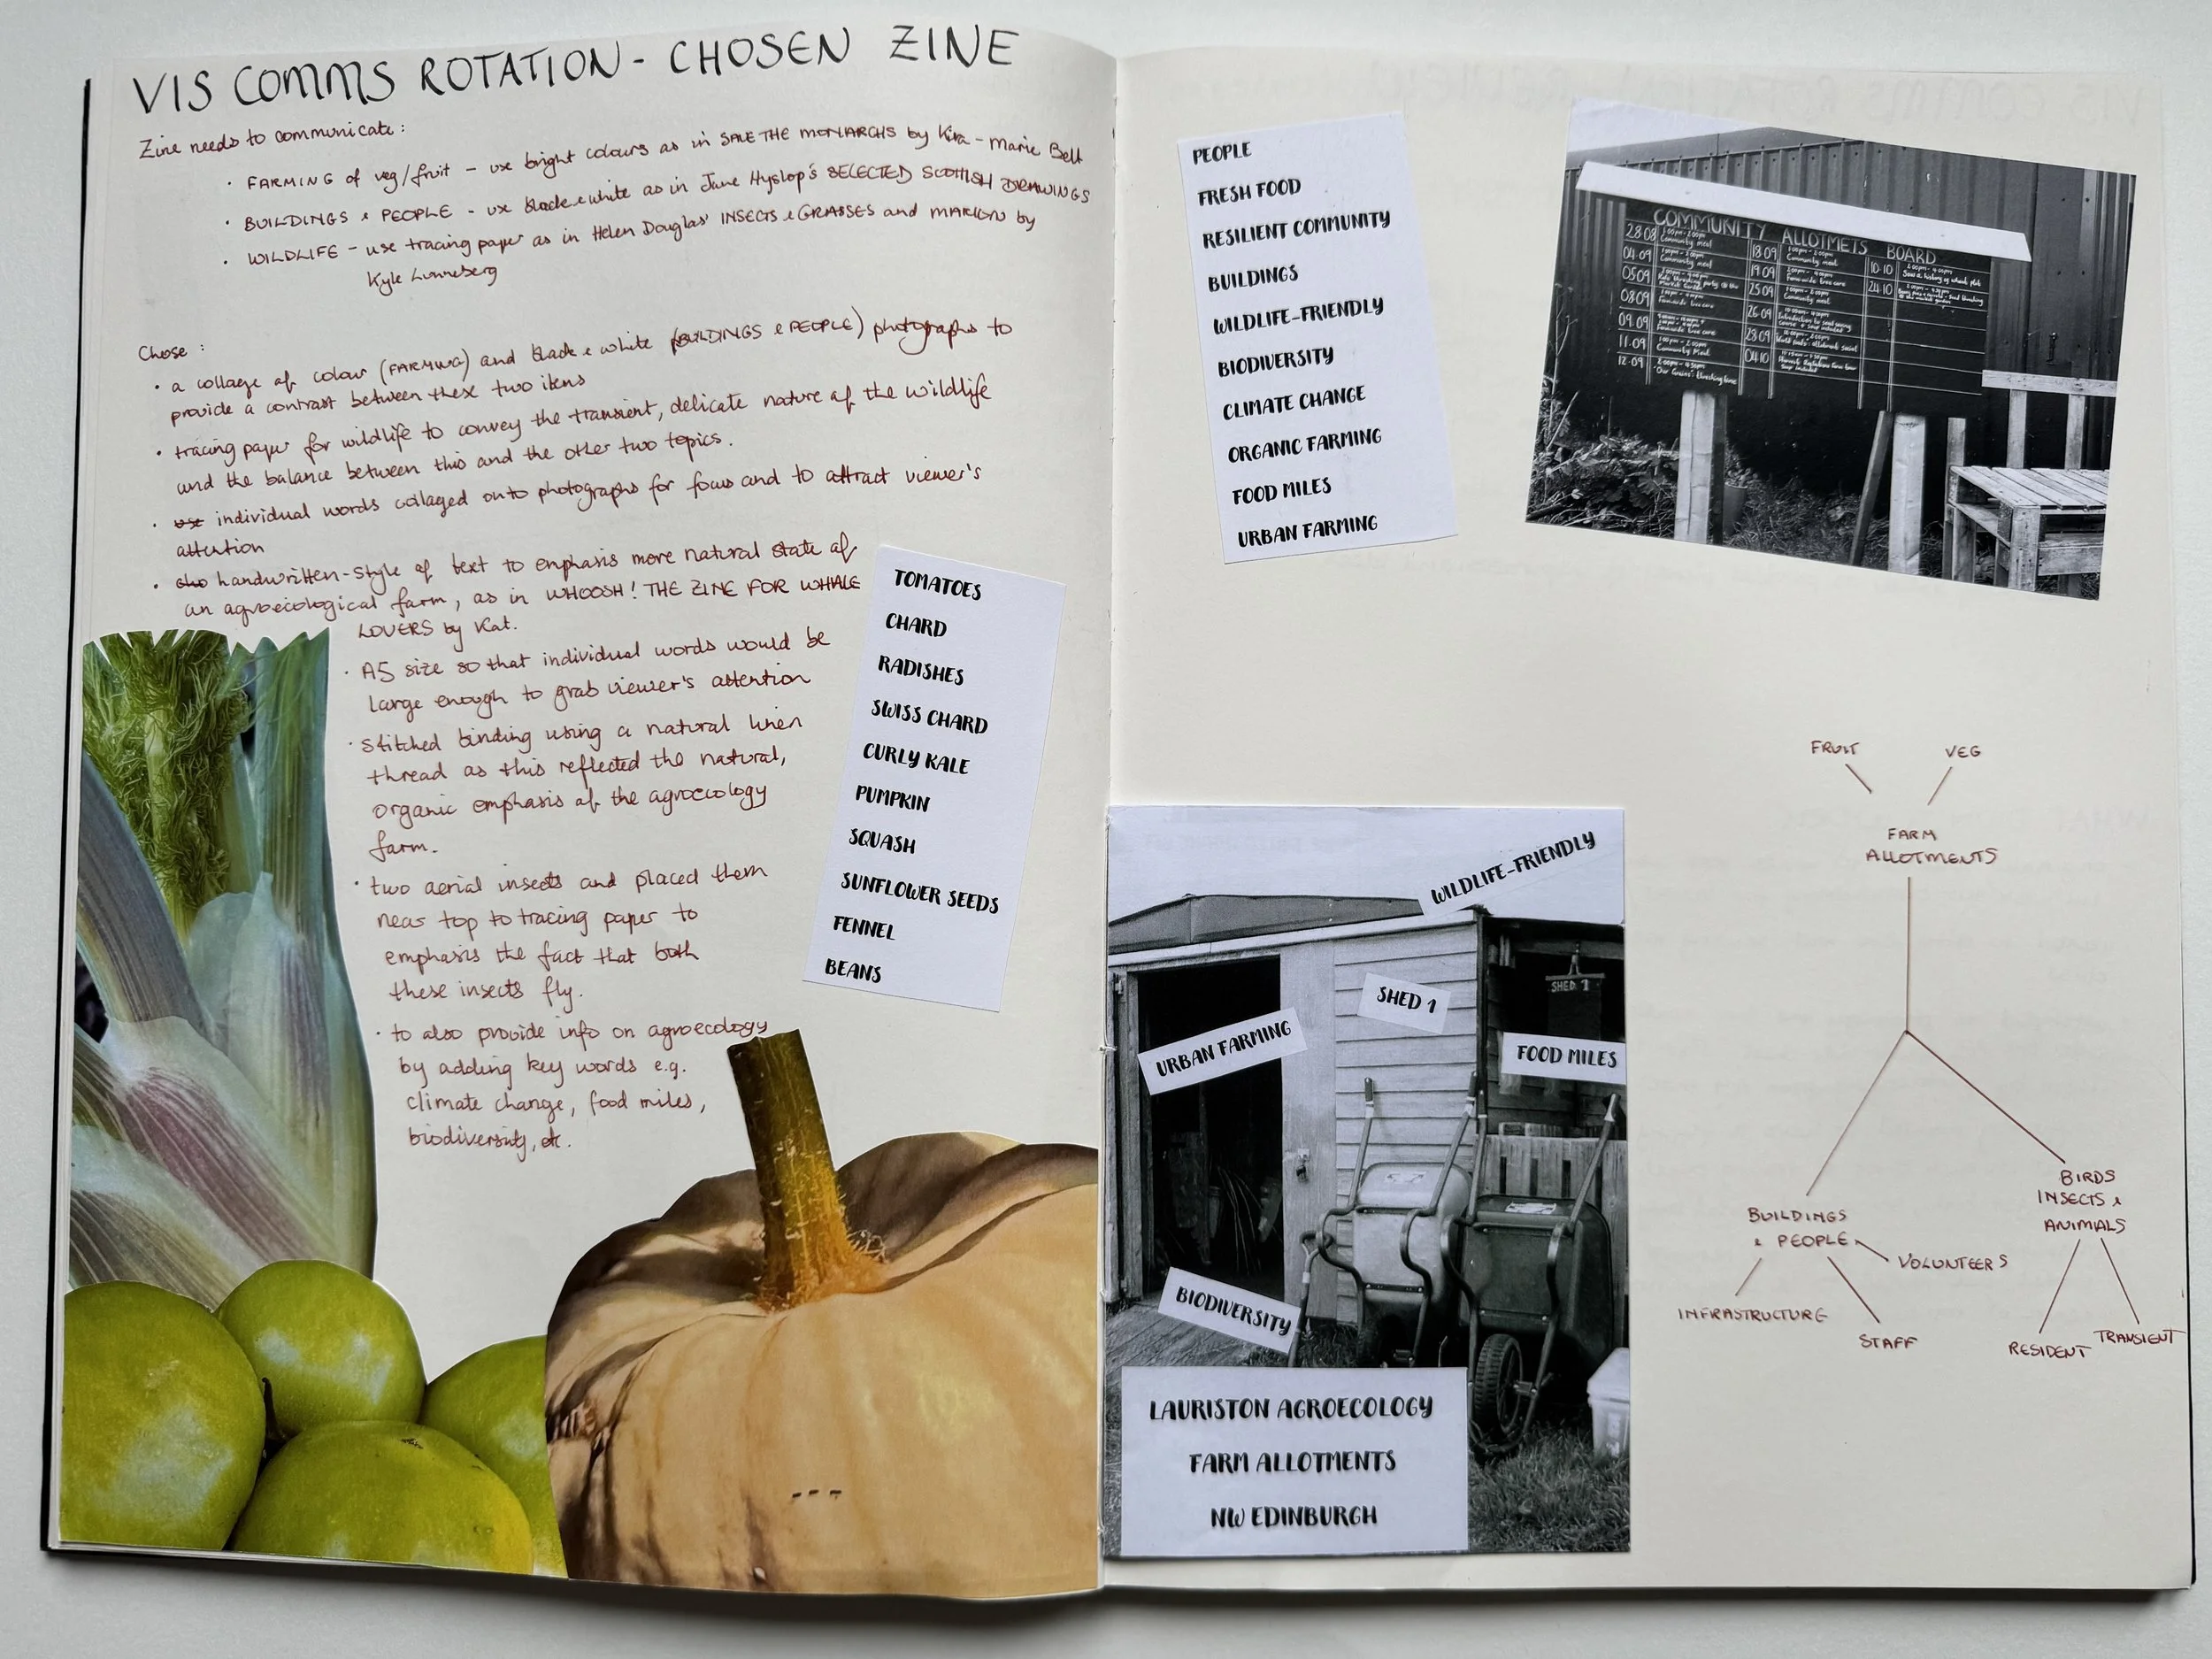 VIS COMMS ROTATION - CHOSEN ZINE
Zine needs to communicate:
· FARMING of veg/fruit - use bright colours as in SAVE THE MONARCHS by Kira-Marie Belt
· BUILDINGS & PEOPLE - use black & white as in Jane Hyslop's SELECTED SCOTTISH DRAWINGS
· WILDLIFE - use tracing paper as in Helen Douglas' INSECTS & GRASSES and MARION by
Kyle Lunneberg
Chose:
· a collage of colour (FARMING) and black & white (BUILDINGS & PEOPLE) photographs to
provide a contrast between these two items
· tracing paper for wildlife to convey the transient, delicate nature of the wildlife
and the balance between this and the other two topics.
· use individual words collaged onto photographs for focus and to attract viewer's
attention
· handwritten-style of text to emphasis more natural state of
an agroecological farm, as in WHOOSH! THE ZINE FOR WHALE
LOVERS by Kat.
· A5 size so that individual words would be
large enough to grab viewer's attention
· stitched binding using a natural linen
thread as this reflected the natural,
organic emphasis of the agroecology
farm.
· two aerial insects and placed them
near top to tracing paper to
emphasis the fact that both
these insects fly.
· to also provide info on agroecology
by adding key words e.g.
climate change, food miles,
biodiversity, etc.
TOMATOES
CHARD
RADISHES
SWISS CHARD
CURLY KALE
PUMPKIN
SQUASH
SUNFLOWER SEEDS
FENNEL
BEANS
PEOPLE
FRESH FOOD
RESILIENT COMMUNITY
BUILDINGS
WILDLIFE-FRIENDLY
BIODIVERSITY
CLIMATE CHANGE
ORGANIC FARMING
FOOD MILES
URBAN FARMING
COMMUNITY ALLOTMETS BOARD
28.08 Community meal
04.09 Community meal
05.09
08.09
09.09
11.09 Community Meal
12.09 "Our Grains": threshing time
18.09 Community meal
19.09
25.09 Community meal
26.09 Introduction to seed saving
28.09
04.10
10.10
24.10
WILDLIFE-FRIENDLY
SHED 1
SHED 1
URBAN FARMING
FOOD MILES
BIODIVERSITY
LAURISTON AGROECOLOGY
FARM ALLOTMENTS
NW EDINBURGH
FRUIT
VEG
FARM
ALLOTMENTS
BUILDINGS
& PEOPLE
VOLUNTEERS
INFRASTRUCTURE
STAFF
BIRDS
INSECTS &
ANIMIALS
RESIDENT
TRANSIENT